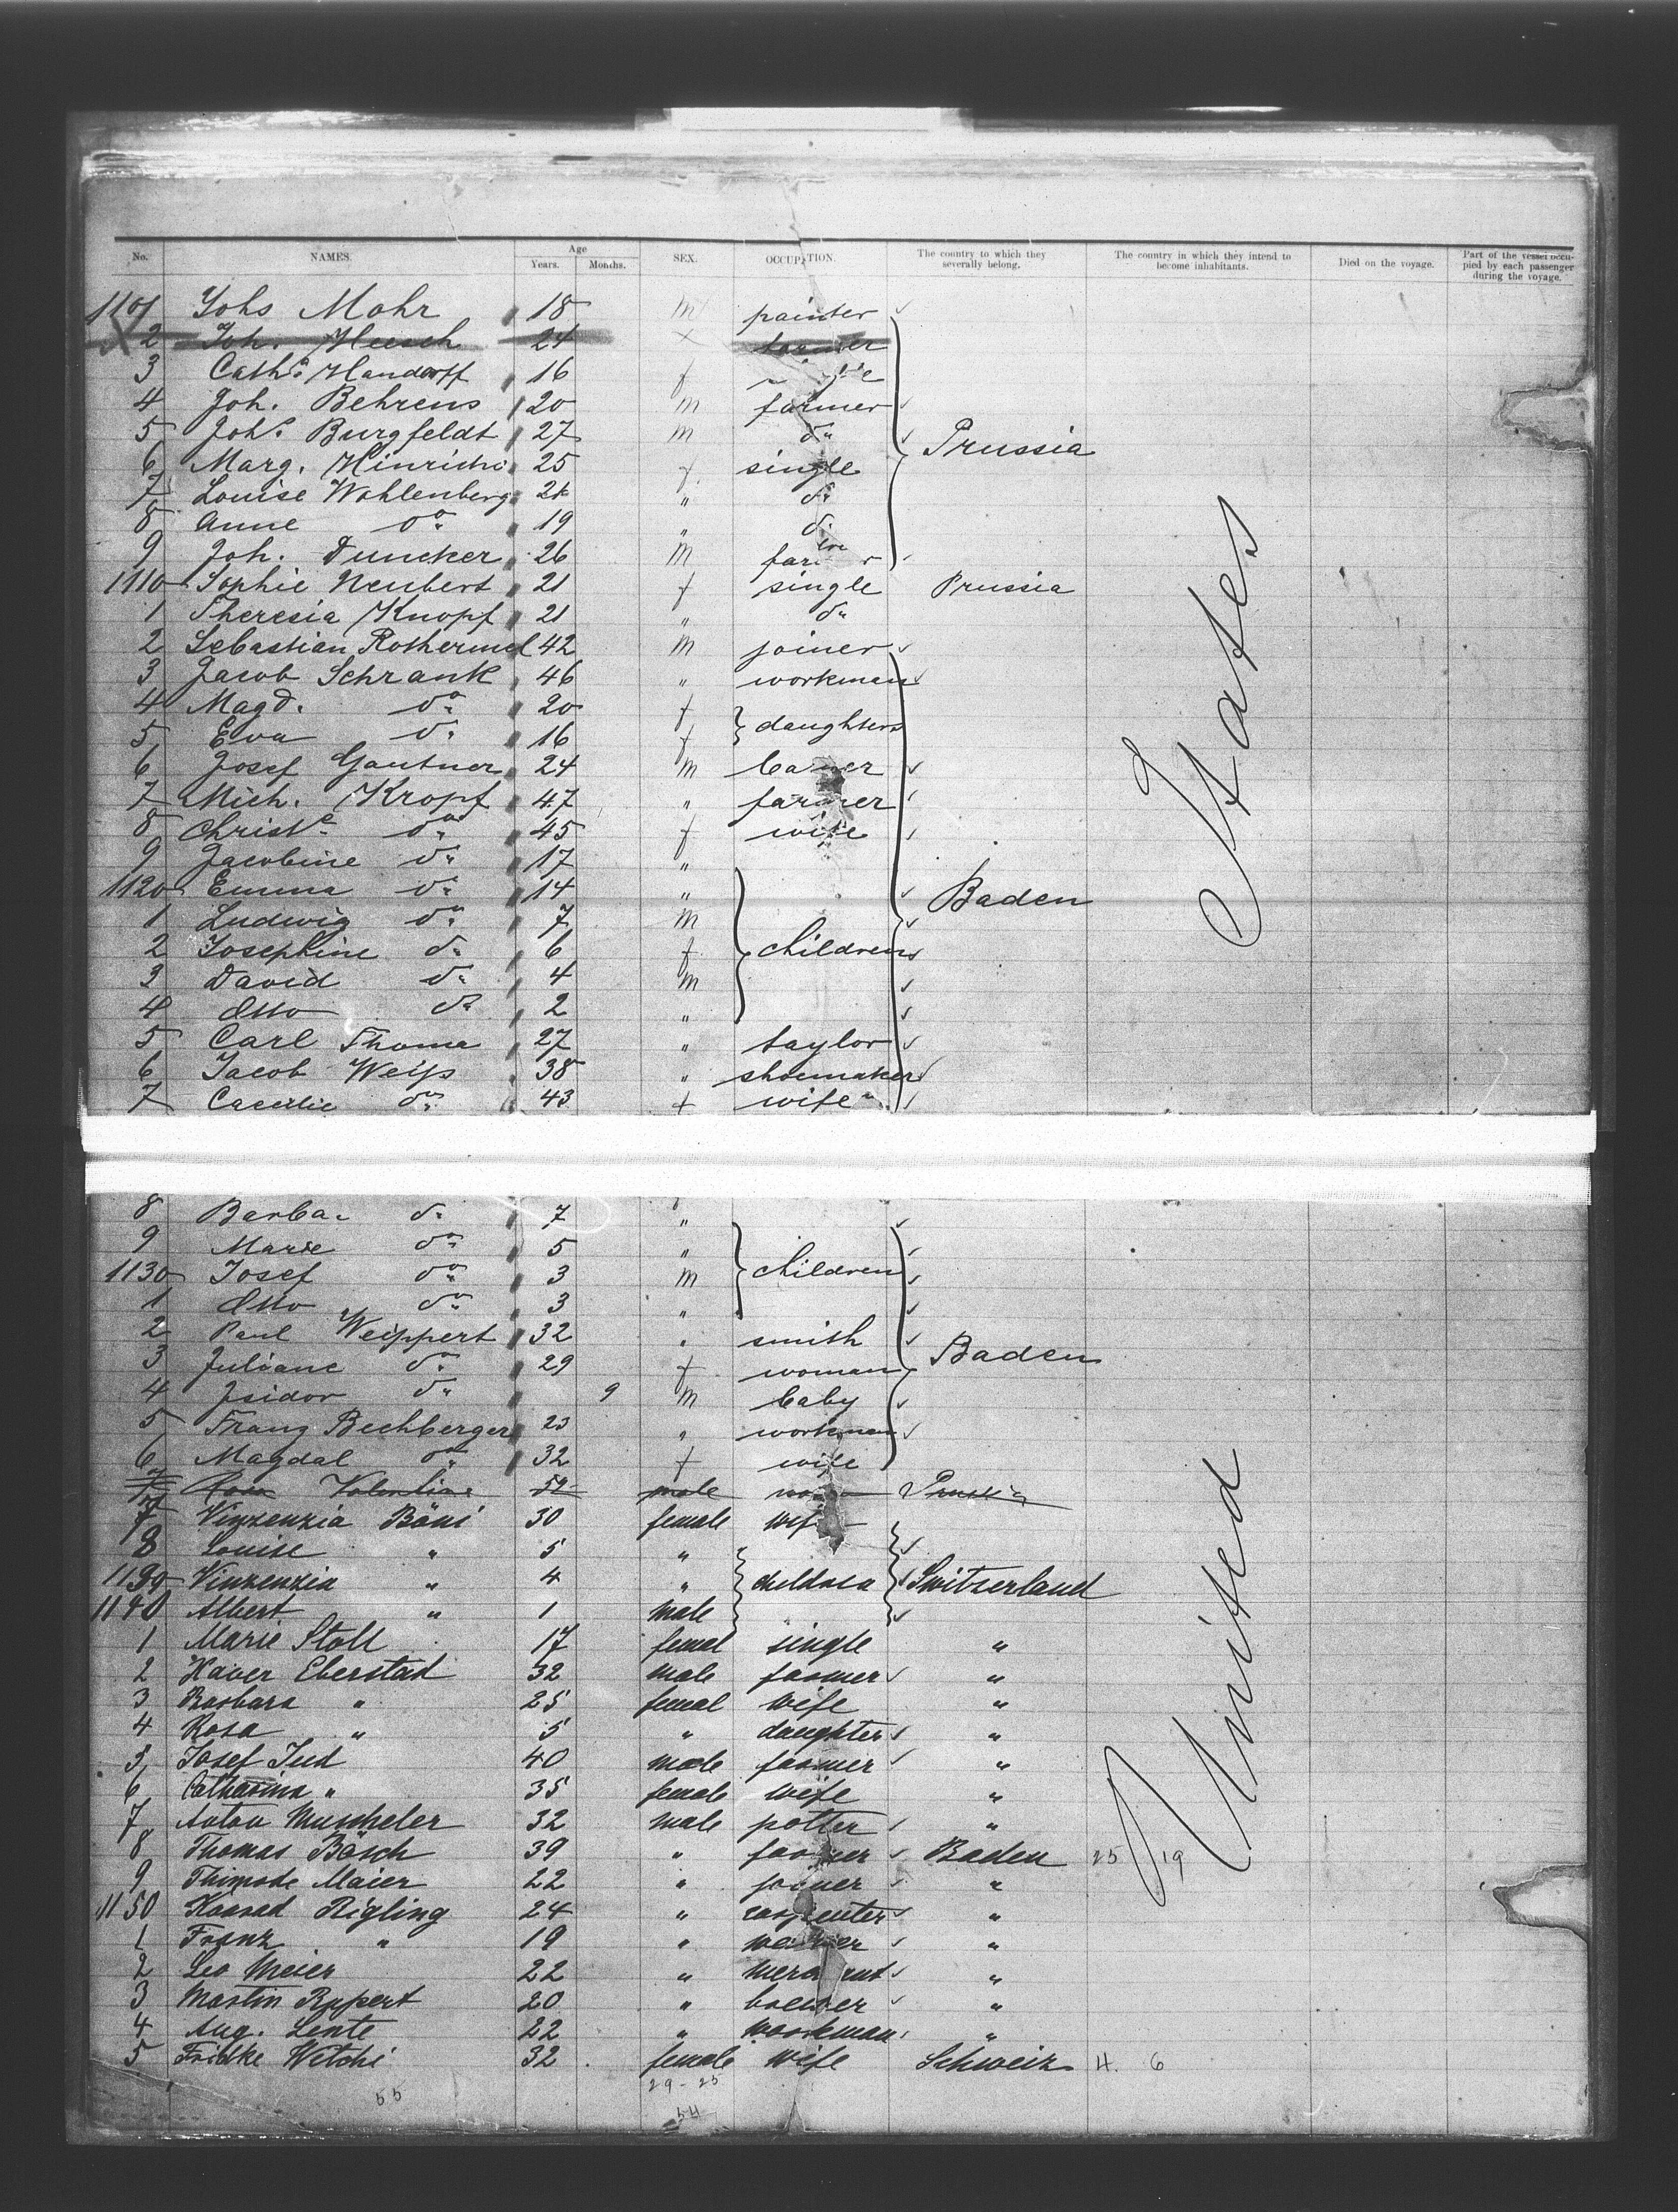 No. NAMES. Age Years. Months. SEX. OCCUPATION. The country to which they severally belong. The country in which they intend to become inhabitants. Died on the voyage. Part of the vessel occupied by each passenger during the voyage.
1101 Johs Mohr 18 m painter
2 Joh. Heesch 24 farmer
3 Cath. Handorff 16 f
4 Joh. Behrens 20 m farmer
5 Joh. Burgfeldt 27 m do Prussia
6 Marg. Hinrichs 25 f single
7 Louise Wohlenberg 21 " do
8 Anne do 19 " do
9 Joh. Duncker 26 m farmer
1110 Sophie Neubert 21 f single Prussia
1 Theresia Knopf 21 " do
2 Sebastian Rothermel 42 m joiner
3 Jacob Schrank 46 " workman
4 Magd. do 20 f daughters
5 Eva do 16 f
6 Josef Gautner 24 m
7 Mich. Kropf 47 " farmer
8 Christe do 45 f wife
9 Jacobine do 17 "
1120 Emma do 14 " Baden
1 Ludwig do 7 m
2 Josephine do 6 f children
3 David do 4 m
4 Otto do 2 "
5 Carl Thoma 27 " taylor
6 Jacob Weiß 38 " shoemaker
7 Caecilie do 43 f wife
8 Barba. do 7 "
9 Marie do 5 "
1130 Josef do 3 m children
1 Otto do 3 "
2 Paul Weippert 32 " smith
3 Juliane do 29 f woman Baden
4 Isidor do 9 m baby
5 Franz Bechberger 23 " workman
6 Magdal do 32 f wife
7 Rosa Valentine male Prussia
7 Vinzenzia Bäni 30 female wife
8 Louise " 5 "
1139 Vinzenzia " 4 " children Switzerland
1140 Albert " 1 male
1 Marie Stoll 17 femal single "
2 Xaver Eberstad 32 male farmer "
3 Barbara " 25 femal wife "
4 Rosa " 5 " daughter "
5 Josef Jud 40 male farmer "
6 Catharina " 35 female wife "
7 Anton Muscheler 32 male potter "
8 Thomas Bäsch 39 " farmer Baden 25 19
9 Thimode Maier 22 " joiner "
1150 Konrad Rigling 24 " carpenter "
1 Franz " 19 " "
2 Leo Meier 22 " merchant "
3 Martin Rupert 20 " "
4 Aug. Lente 22 " workman "
5 Fridke Wetchi 32 female wife Schweiz 4. 6
United States
29-25
55
54